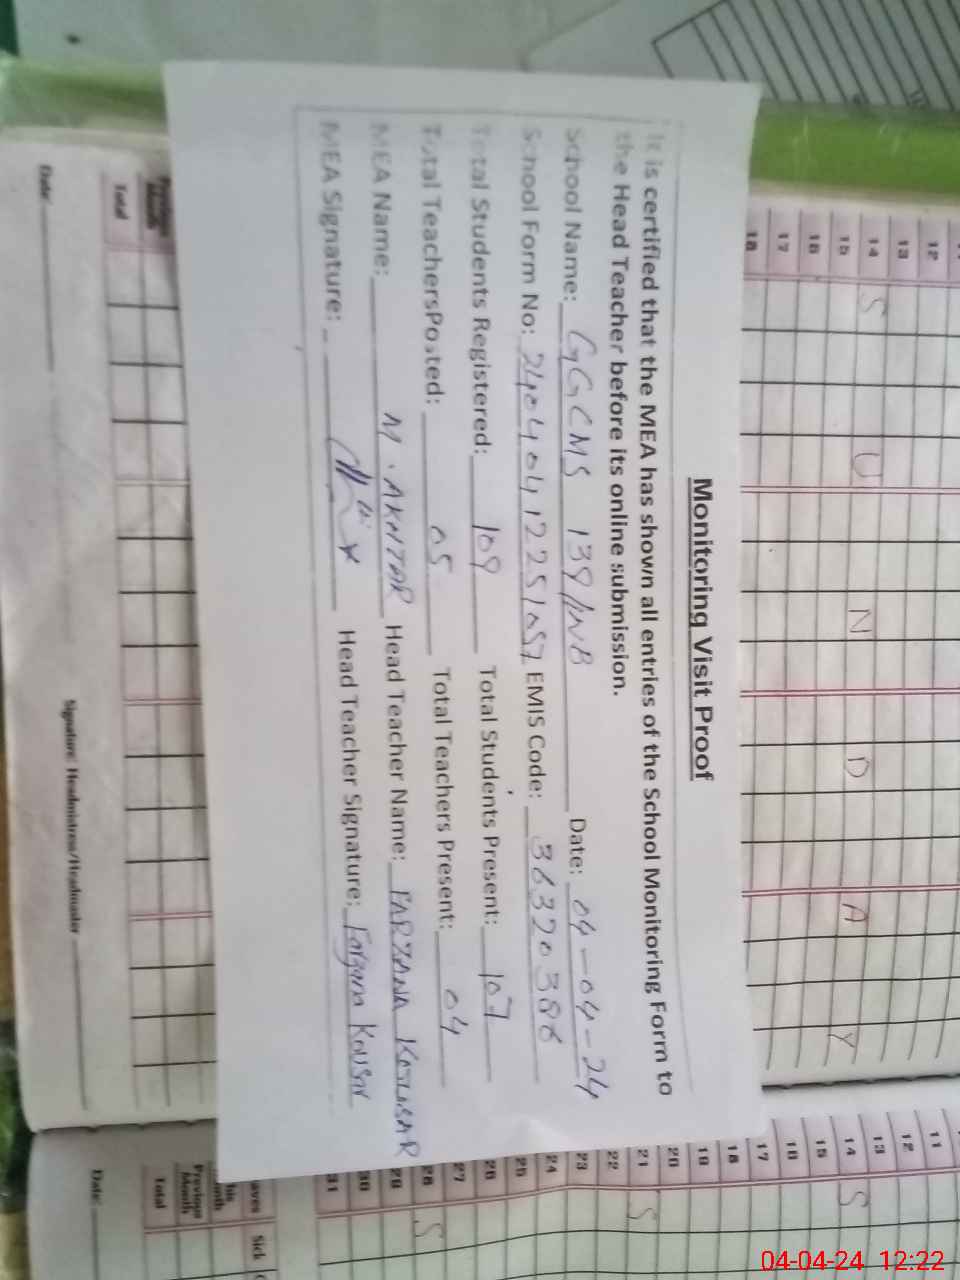 Monitoring Visit Proof
It is certified that the MEA has shown all entries of the School Monitoring Form to
the Head Teacher before its online submission.
School Name: GGCMS 139/NB Date: 04-04-24
School Form No: EMIS Code: 38320386
Total Students Registered: 109 Total Students Present: 107
Total TeachersPosted: 05 Total Teachers Present: 04
MEA Name: M. AKHTAR Head Teacher Name: FARZANA KOUSAR
MEA Signature: Head Teacher Signature: Farzana Kousar
12
13
14 S U N D A Y
15
16
17
18
11
12
13
14 S
15
16
17
18
19
20
21 S
22
23
24
25
26
27
28 S
29
30
31
Previous Month
Total
Date:
Signature: Headmistress/Headmaster
Sick
Previous Month
Total
Date:
04-04-24 12:22